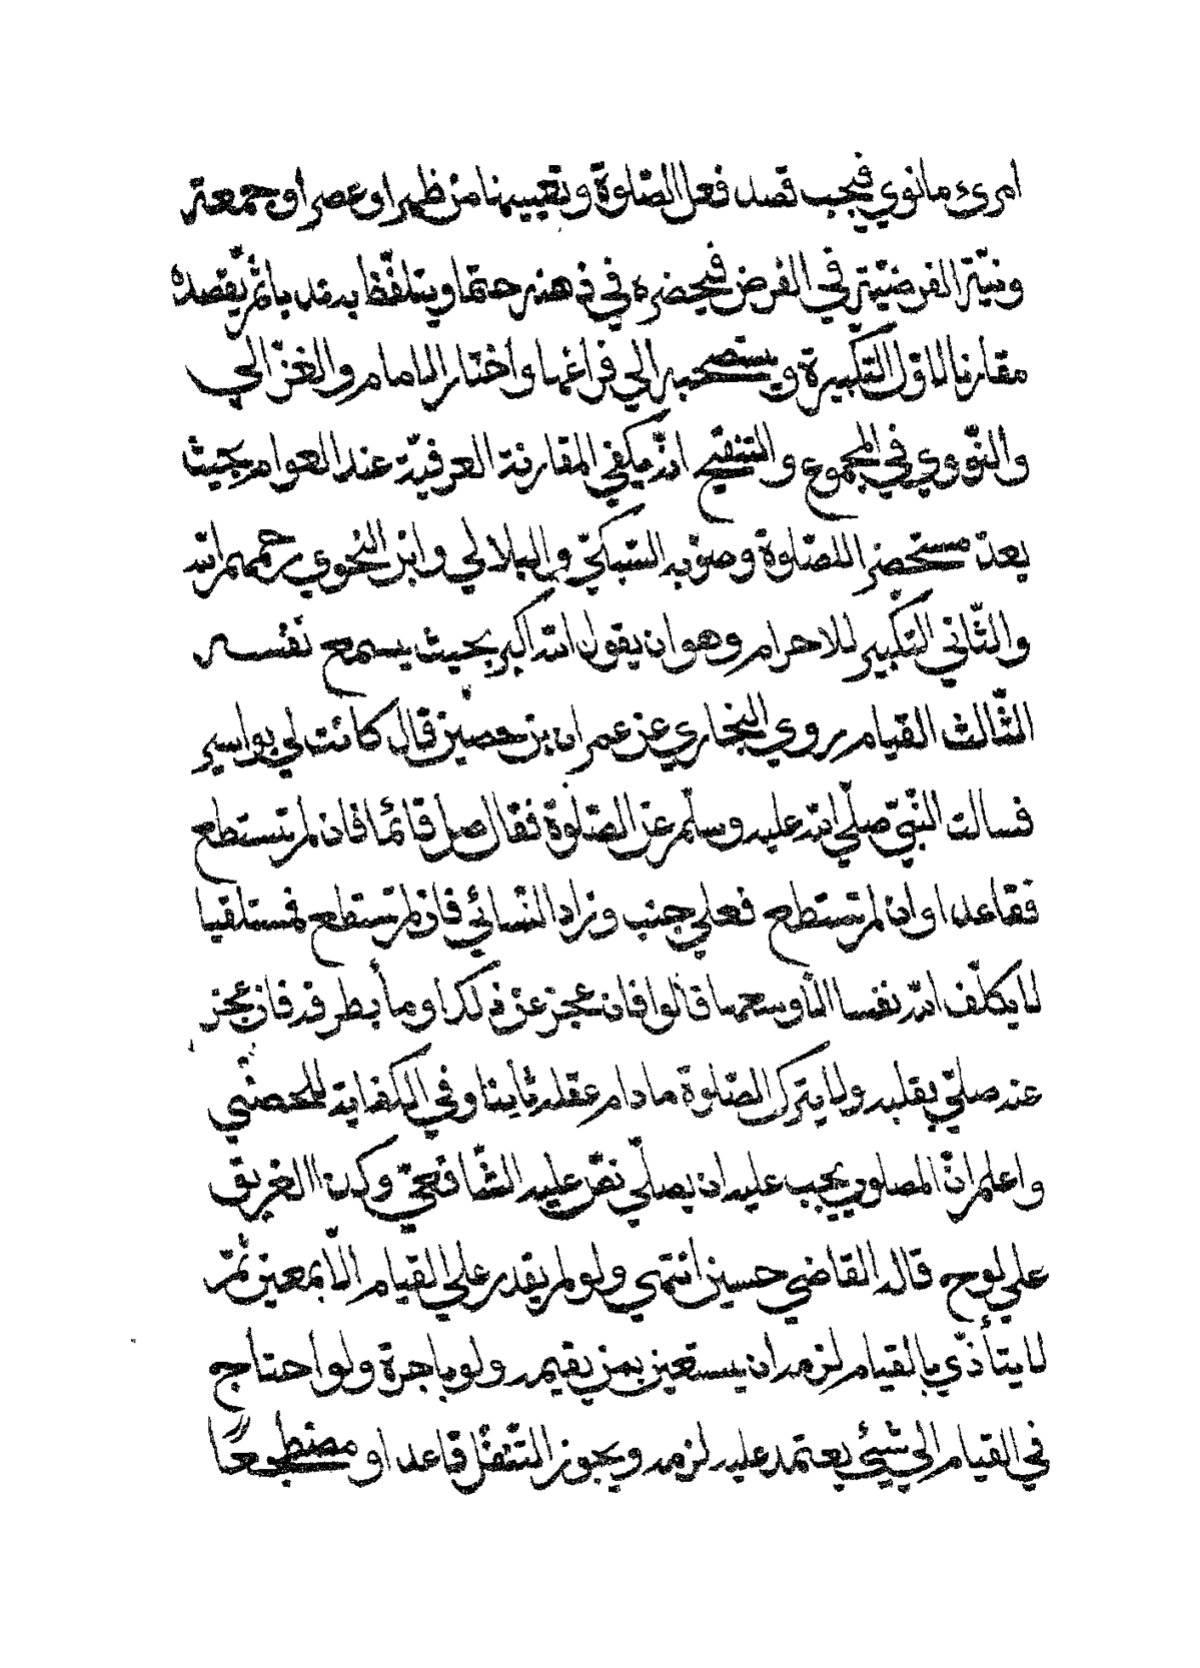 امرئ مانوي فيجب قصد فعل الصّلوة وتعيينها من ظهر او عصر او جمعة
ونيّة الفرضيّة في الفرض فيحضره في ذهنه حتما ويتلفّظ به ندبا ثمّ يقصده
مقارنا لاوّل التّكبيرة ويستصحبه الي فراغها واختار الامام والغزالي
والنّووي في المجموع والتنقيح انّه يكفي المقارنة العرفيّة عند العوام بحيث
يعدّ مستحضرا للصّلوة وصوّبه السّبكيّ والبلالي وابن النحوي رحمهم الله
والثّاني التكبير للاحرام وهو ان يقول الله اكبر بحيث يسمع نفسه
الثّالث القيام روي البخاري عن عمران بن حصين قال كانت لي بواسير
فسالت النّبيّ صلّي الله عليه وسلّم عن الصّلوة فقال صل قائما فان لم تستطع
فقاعدا وان لم تستطع فعلي جنب وزاد النّسائي فان لم تستطع فمستلقيا
لا يكلّف الله نفسا الّا وسعها قالوا فان عجز عن ذلك اوما بطرفه فان عجز
عنه صلّي بقلبه ولا يترك الصّلوة مادام عقله ثابتا وفي الكفاية للحصني
واعلم انّ المصلوب يجب عليه ان يصلّي نصّ عليه الشّافعيّ وكذا الغريق
علي لوح قاله القاضي حسين انتهي ولو لم يقدر علي القيام الّا بمعين ثمّ
لا يتأذّي بالقيام لزمه ان يستعين بمن يقيمه ولو باجرة ولو احتاج
في القيام الي شيئ يعتمد عليه لزمه ويجوز التنفّل قاعدا او مضطجعًا